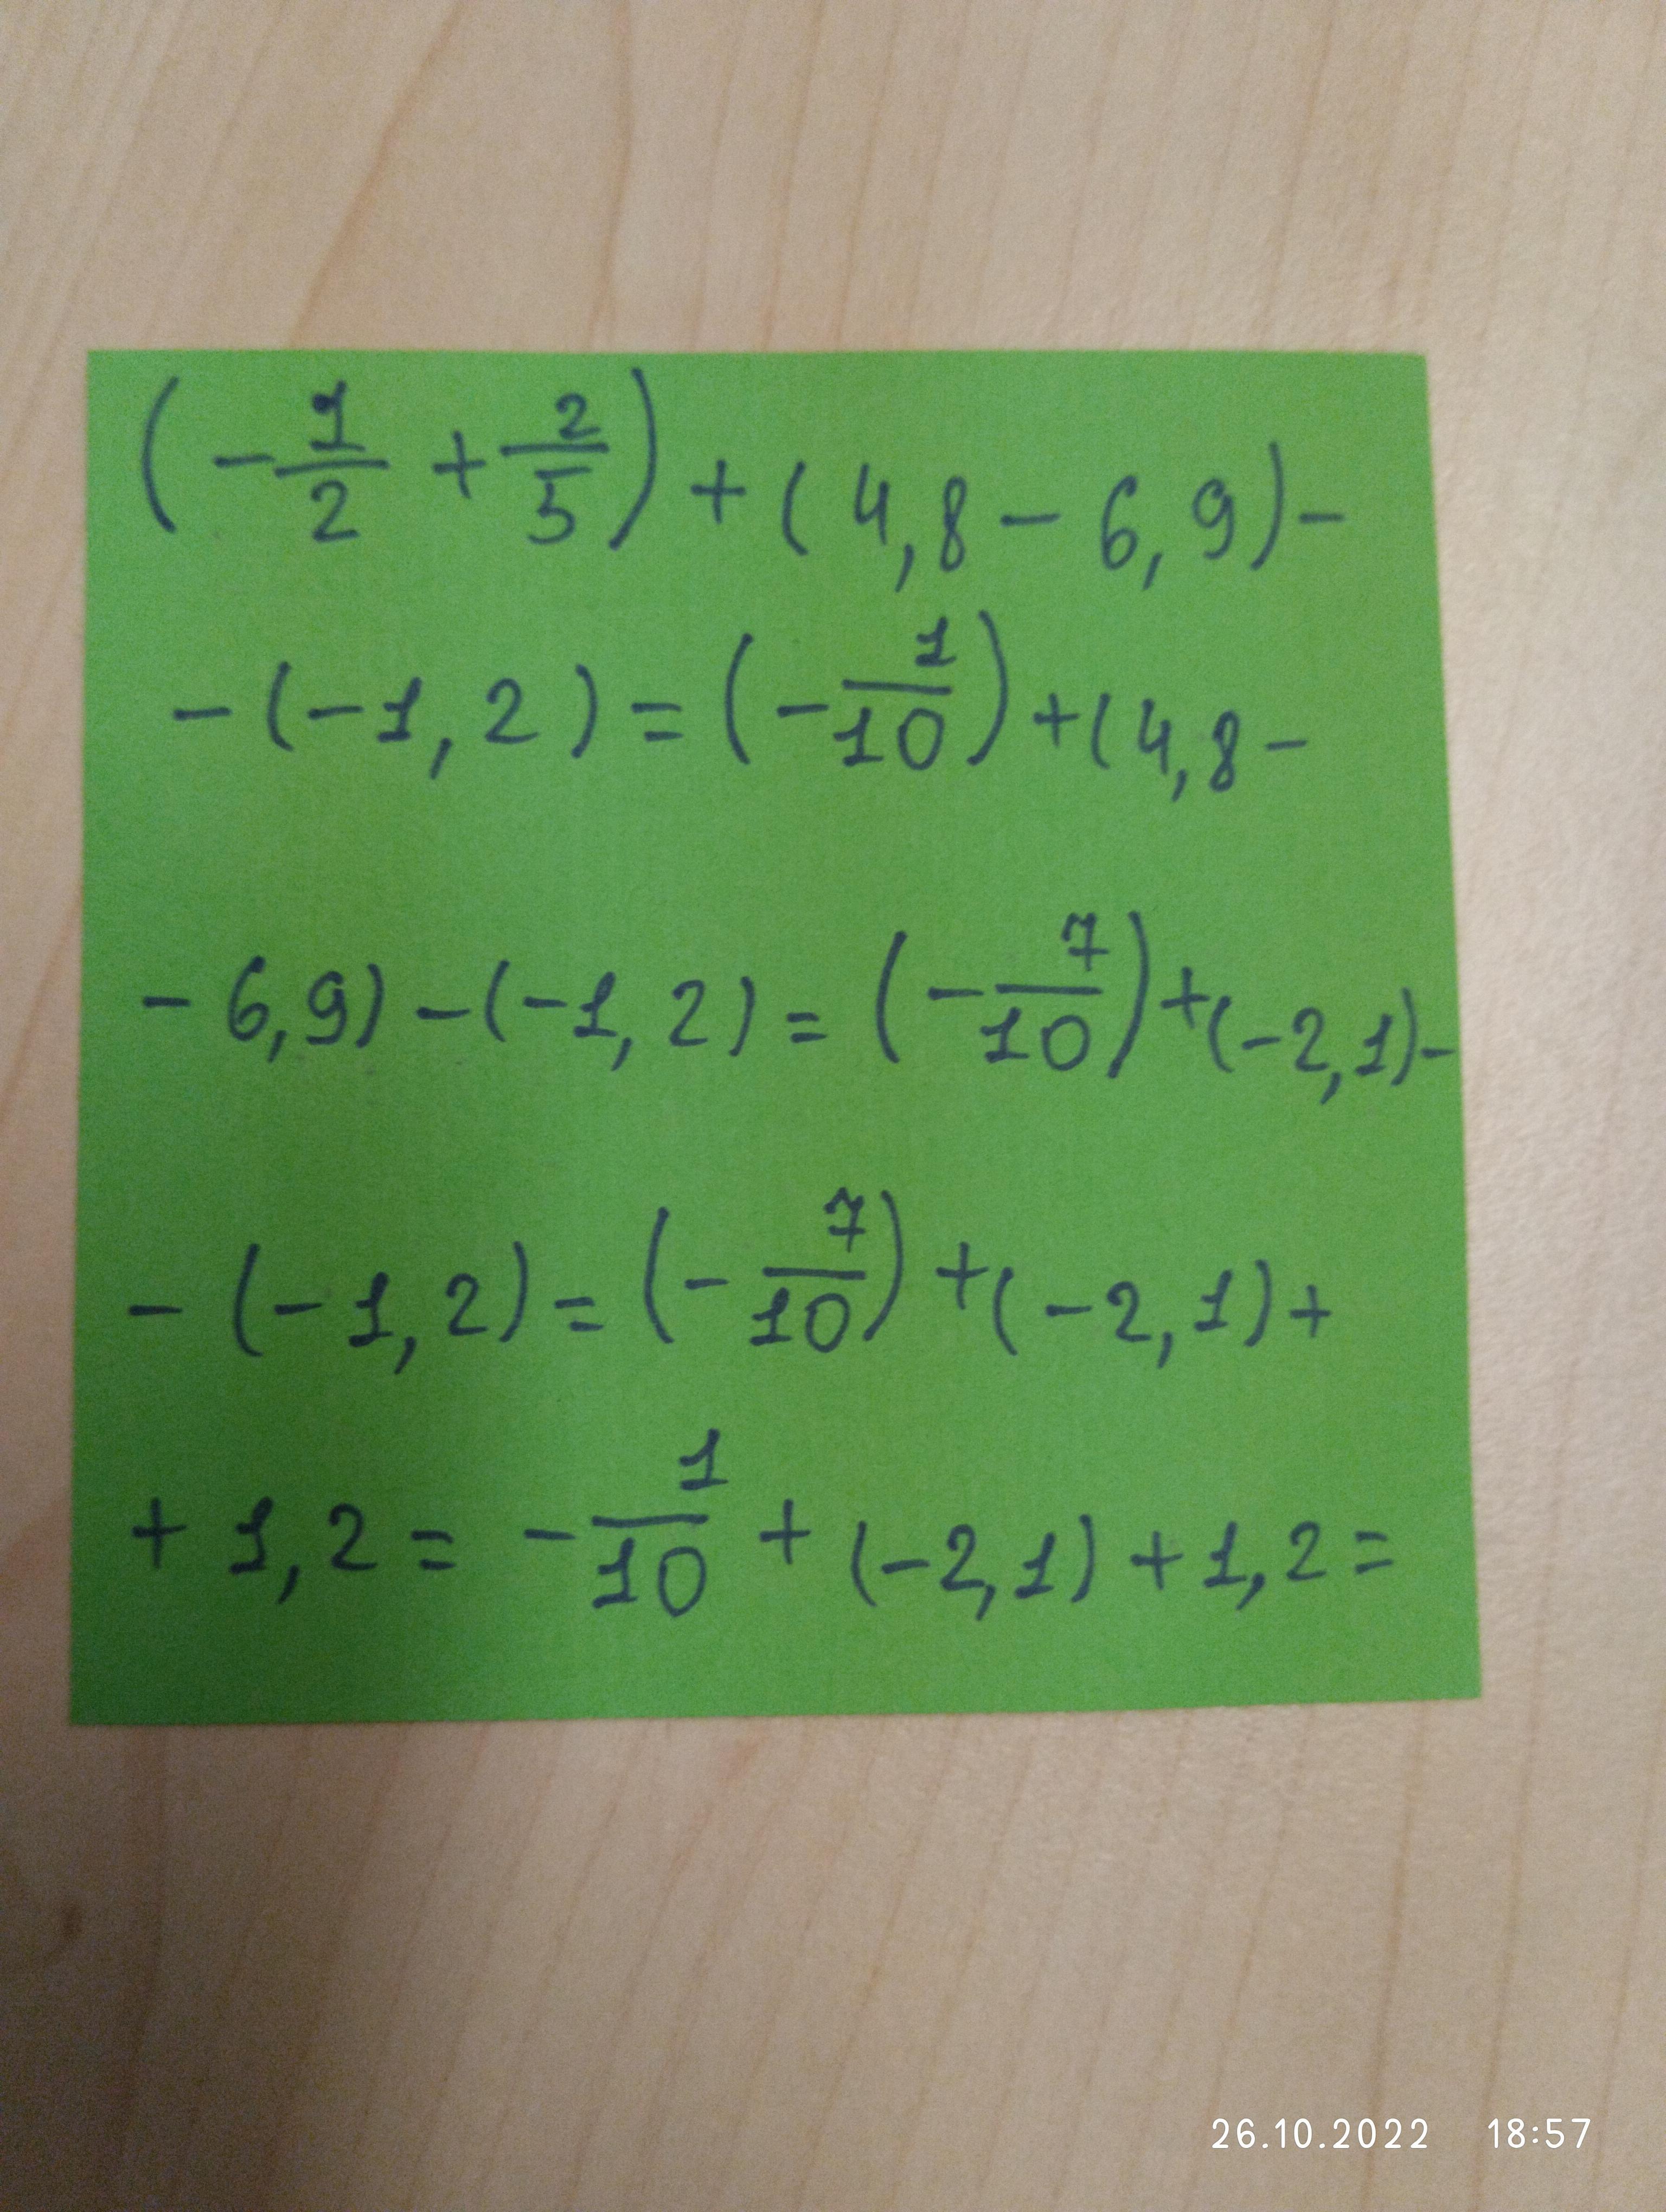 (-1/2 + 2/5) + (4,8 - 6,9) -
- (-1,2) = (-1/10) + (4,8 -
- 6,9) - (-1,2) = (-7/10) + (-2,1) -
- (-1,2) = (-7/10) + (-2,1) +
+ 1,2 = -1/10 + (-2,1) + 1,2 =
26.10.2022 18:57